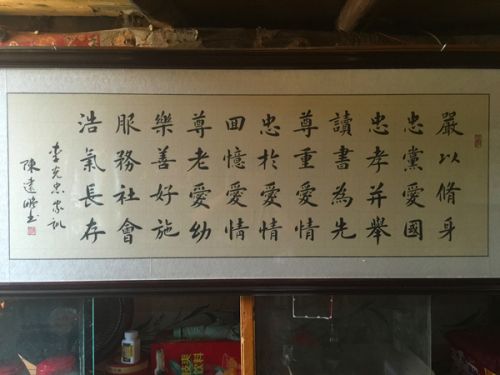 嚴以脩身
忠黨愛國
忠孝并舉
讀書為先
尊重愛情
忠於愛情
回憶愛情
尊老愛幼
樂善好施
服務社會
浩氣長存
李忠家训
陳书
飲料